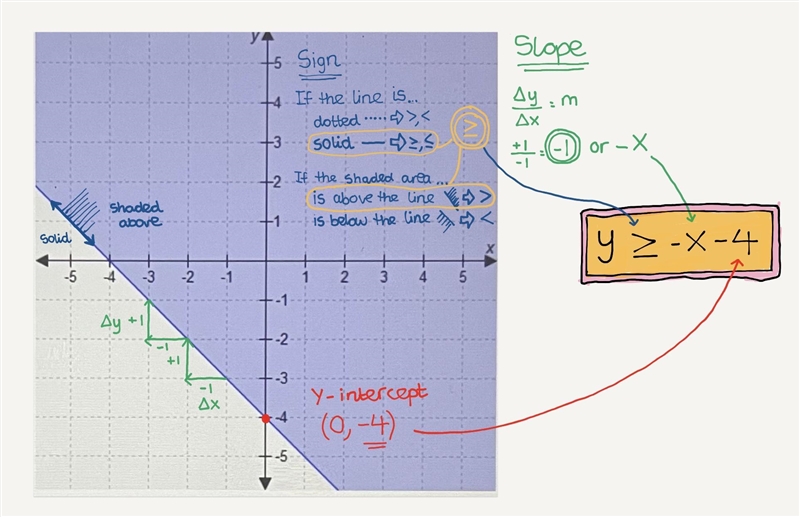 y
Sign
If the line is...
dotted ····· ⇨ >, <
solid — ⇨ ≥, ≤
≥
If the shaded area...
is above the line ⇨ >
is below the line ⇨ <
Slope
Δy/Δx = m
+1/-1 = -1 or -x
shaded
above
solid
y ≥ -x -4
x
-5 -4 -3 -2 -1 1 2 3 4 5
5
4
3
2
1
-1
-2
-3
-4
-5
Δy +1
-1
+1
-1
Δx
Y-intercept
(0, -4)